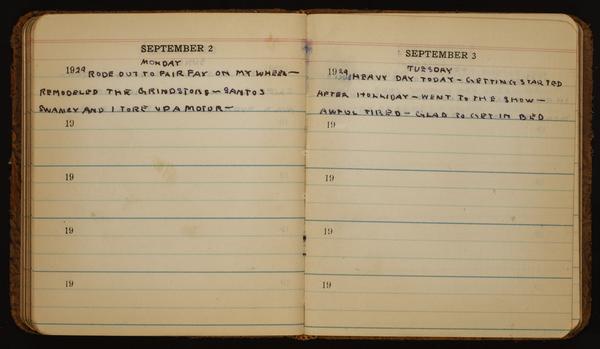 SEPTEMBER 2
MONDAY
1929 RODE OUT TO FAIRFAX ON MY WHEEL—
REMODELED THE GRINDSTONE — SANTOS
SWANEY AND I TORE UP A MOTOR —
19
19
19
19
SEPTEMBER 3
TUESDAY
1929 HEAVY DAY TODAY — GETTING STARTED
AFTER HOLLIDAY — WENT TO THE SHOW —
AWFUL TIRED — GLAD TO GET IN BED
19
19
19
19